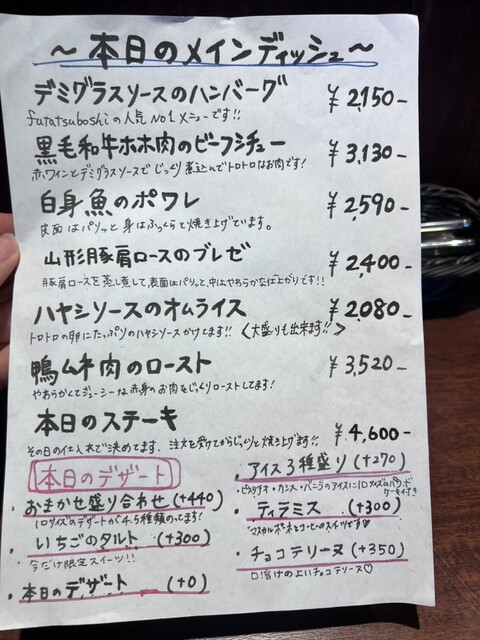 ～本日のメインディッシュ～
デミグラスソースのハンバーグ ¥2,150-
futatsuboshiの人気No1メニューです!!
黒毛和牛ホホ肉のビーフシチュー ¥3,130-
赤ワインとデミグラスソースでじっくり煮込んでトロトロなお肉です!
白身魚のポワレ ¥2,590-
皮面はパリッと身はふっくらと焼き上げています。
山形豚肩ロースのブレゼ ¥2,400-
豚肩ロースを蒸し煮して、表面はパリッと、中はやわらかな仕上がりです!!
ハヤシソースのオムライス ¥2,080-
トロトロの卵にたっぷりのハヤシソースかけてます!! <大盛りも出来ます!!>
鴨ムネ肉のロースト ¥3,520-
やわらかくてジューシーな赤身のお肉をじっくりローストしてます!
本日のステーキ ¥4,600-
その日の仕入れで決めてます、注文を受けてからじっくりと焼き上げます!!
本日のデザート
・おまかせ盛り合わせ (+440)
1口サイズのデザートが4、5種類のってます!
・いちごのタルト (+300)
今だけ限定スイーツ!!
・本日のデザート (+0)
・アイス3種盛り (+270)
・ピスタチオ・カシス・バニラのアイスに1口サイズのパウンドケーキ付き
・ティラミス (+300)
マスカルポーネとコーヒーのスイーツです♡
・チョコテリーヌ (+350)
口溶けの よいチョコテリーヌ♡